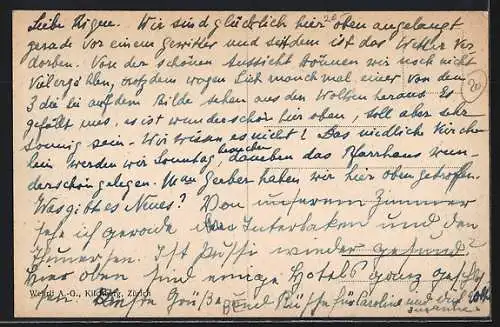 Liebe Eugen. Wir sind glücklich hier oben angelangt
gerade vor einem Gewitter und seitdem ist das Wetter ver
dorben. Von der schönen Aussicht können wir noch nicht
viel erzählen, trotzdem wagen sich manchmal einer von den
3 die Sie auf dem Bilde sehen aus den Wolken heraus. Es
gefällt uns, es ist wunderschön hier oben, soll aber sehr
sonnig sein. Wir wissen es nicht! Das niedliche Kirchen
lein werden wir Sonntag besuchen, daneben das Pfarrhaus wun
derschön gelegen. Gerber haben wir hier oben getroffen.
Was gibt es Neues? Von unserem Zimmer
sehe ich gerade Interlaken und den
Thunersee. Ist wieder gesund?
hier oben sind einige Hotels ganz
Grüße und Küsse für Caroline und
Susanne
20
Wehrli A.-G., Kilchberg, Zürich